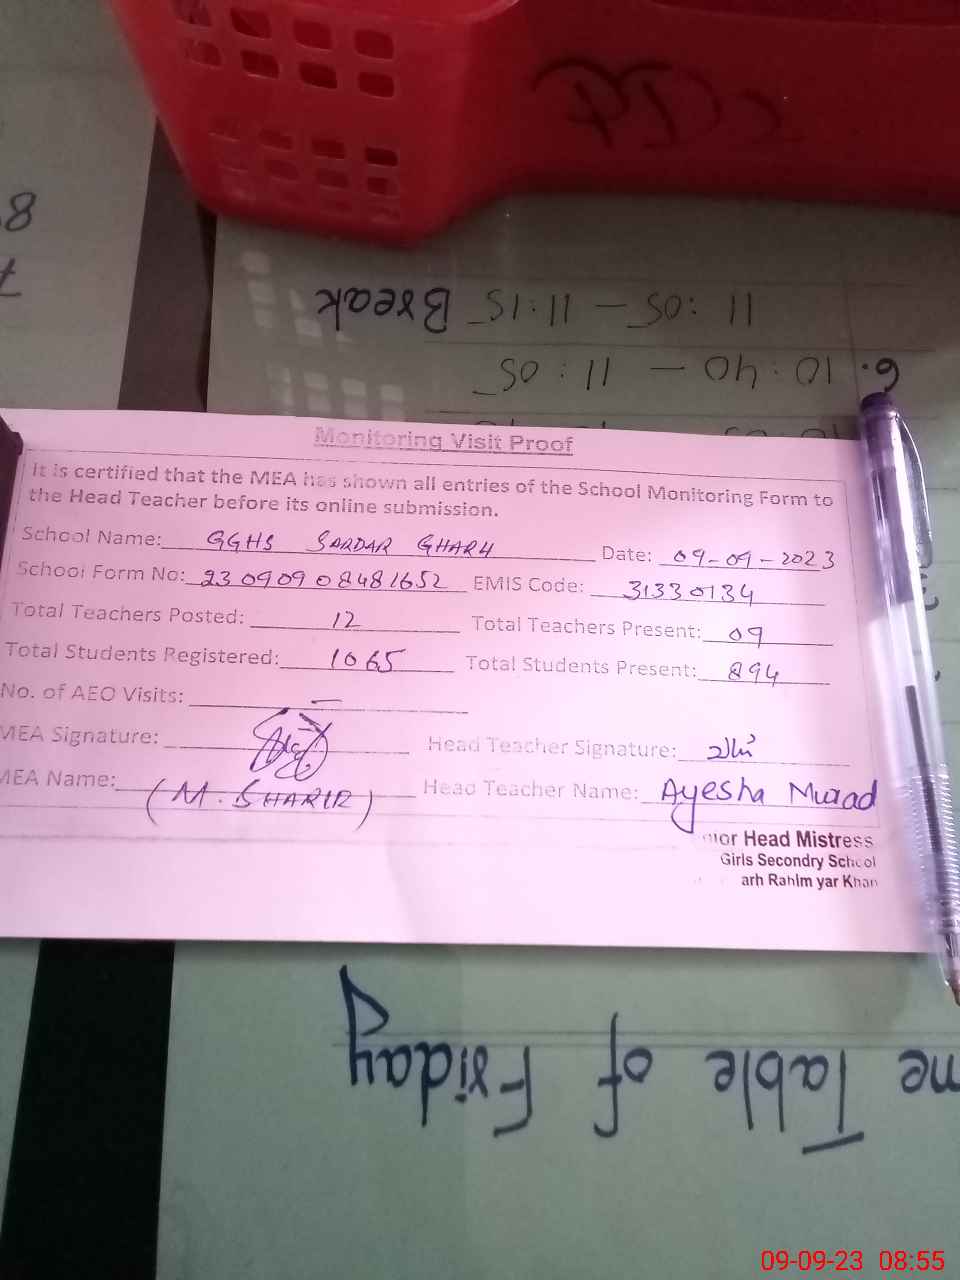 8
7
11:05 - 11:15 Break
6. 10:40 - 11:05
Monitoring Visit Proof
It is certified that the MEA has shown all entries of the School Monitoring Form to
the Head Teacher before its online submission.
School Name: GGHS SARDAR GHARH Date: 09-09-2023
School Form No: 23090908481652 EMIS Code: 31330134
Total Teachers Posted: 12 Total Teachers Present: 09
Total Students Registered: 1065 Total Students Present: 894
No. of AEO Visits: -
MEA Signature: Head Teacher Signature:
MEA Name: (M. SHABIR) Head Teacher Name: Ayesha Murad
Head Mistress
Girls Secondry School
arh Rahim yar Khan
me Table of Friday
09-09-23 08:55